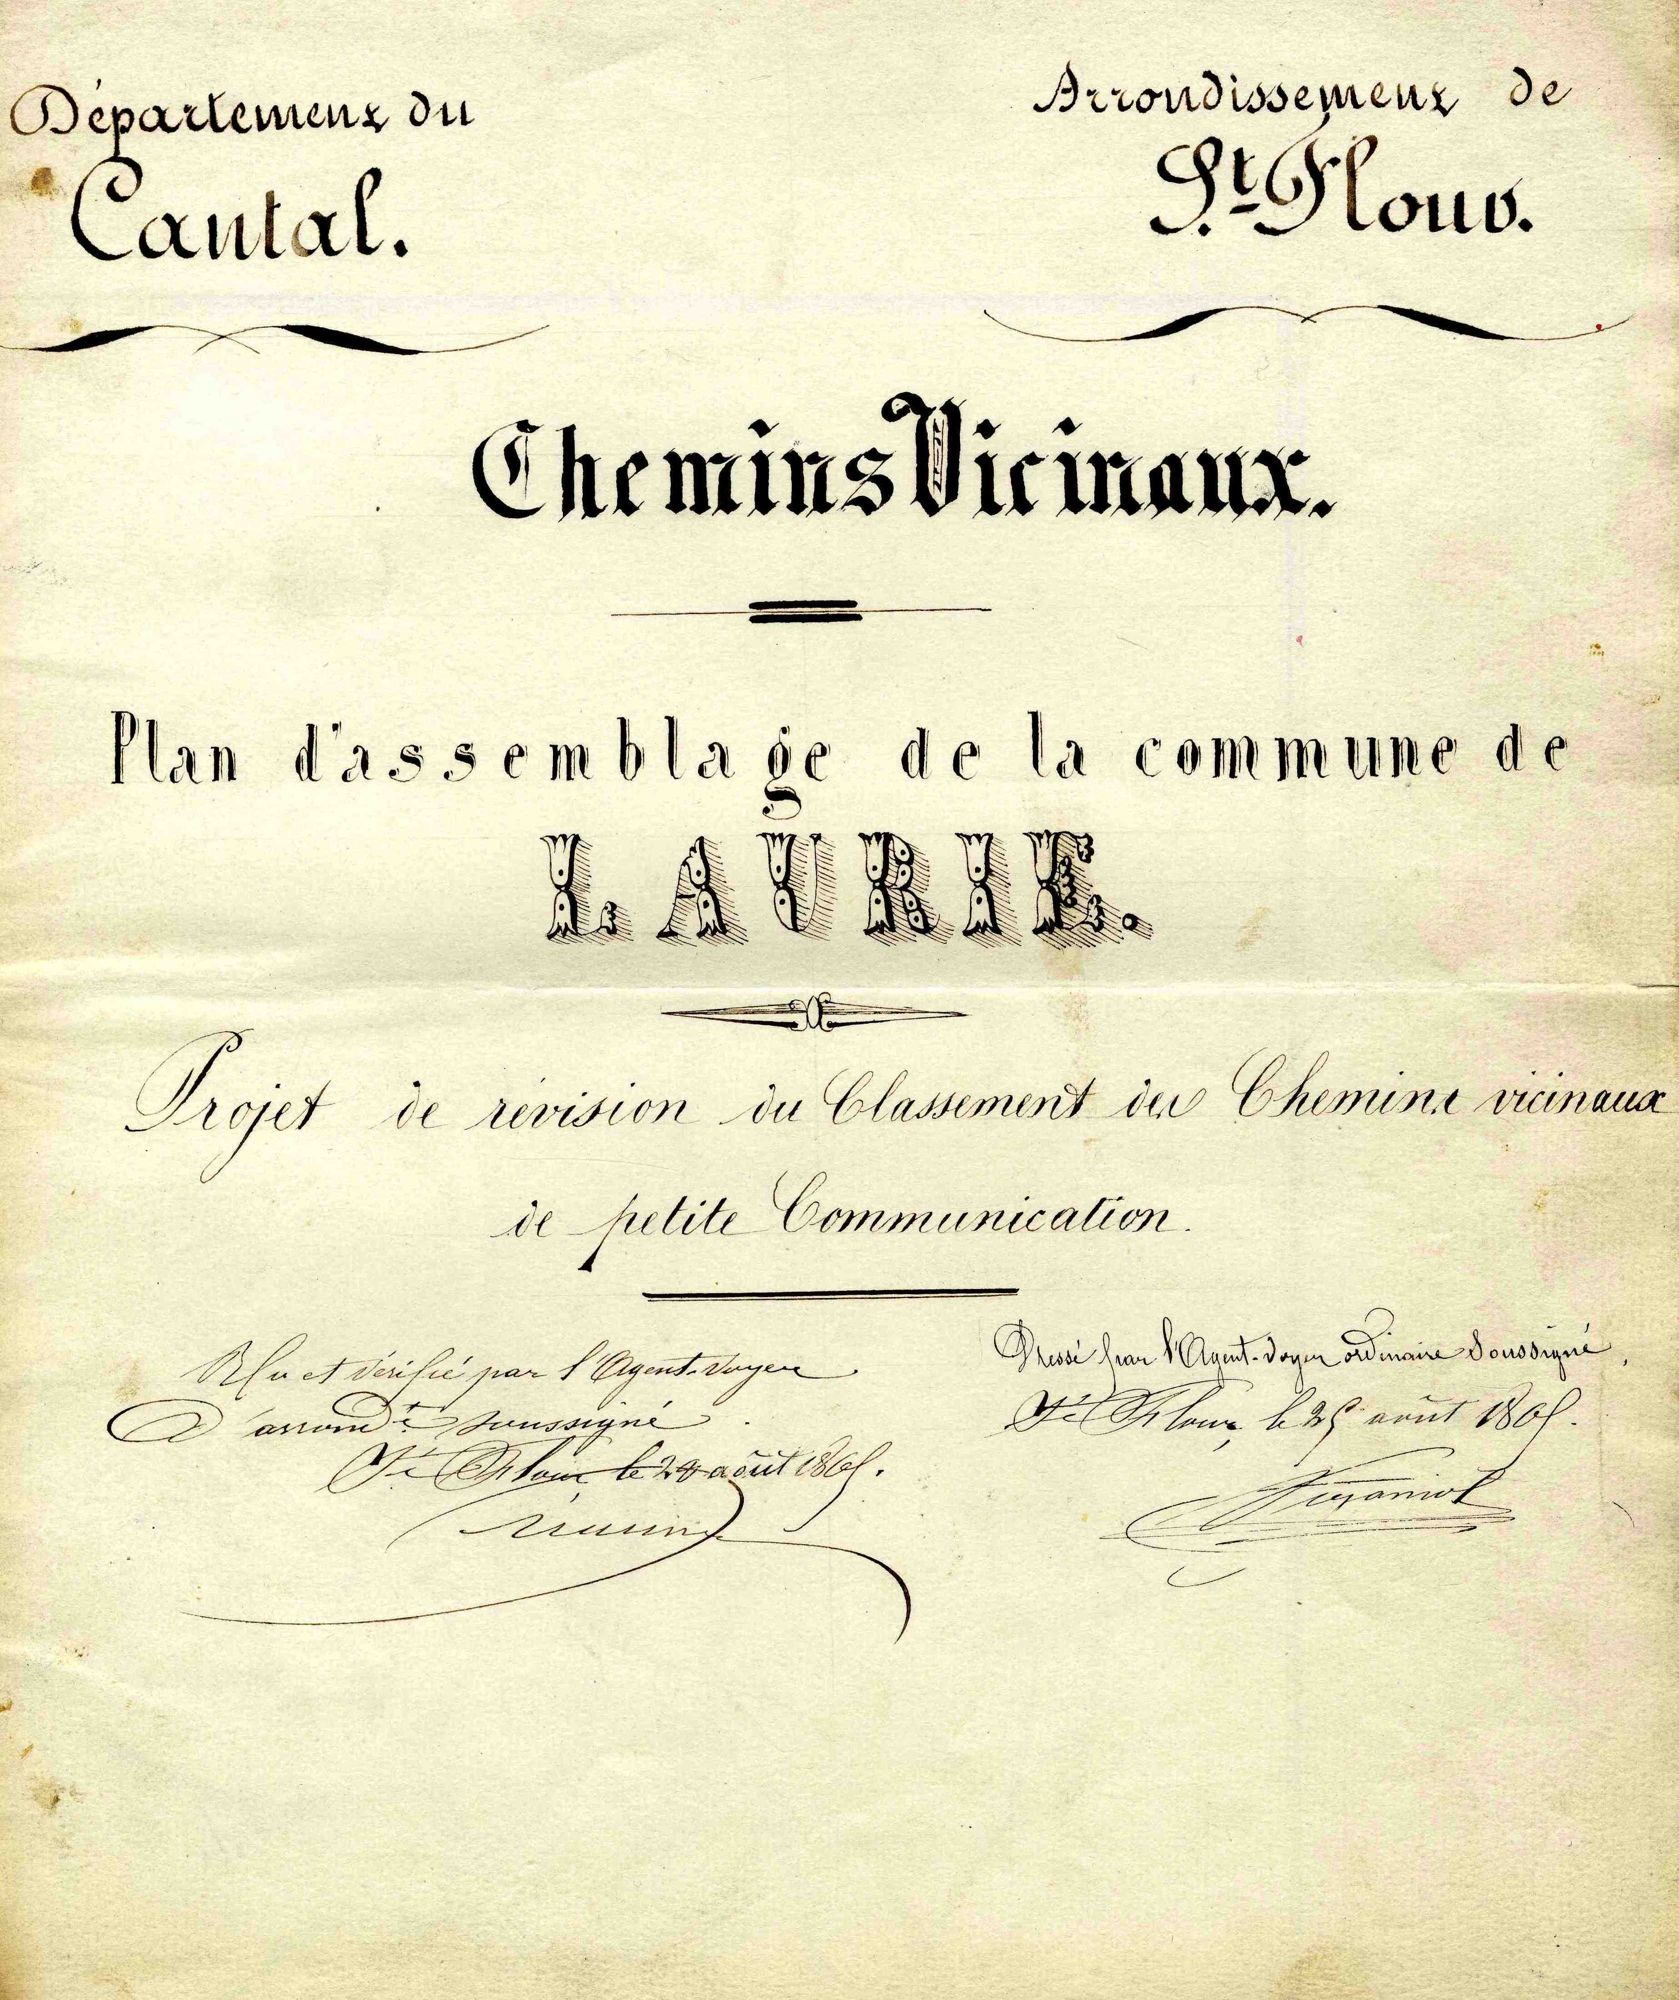 Département du
Cantal.
Arrondissement de
St. Flour.
Chemins Vicinaux.
Plan d'assemblage de la commune de
LAURIE.
Projet de révision du Classement des Chemins vicinaux
de petite Communication.
Vu et vérifié par l'Agent-Voyer
D'arrond.t soussigné.
St Flour, le 28 août 1865.
Dressé par l'Agent-Voyer ordinaire Soussigné,
St Flour, le 25 août 1865.